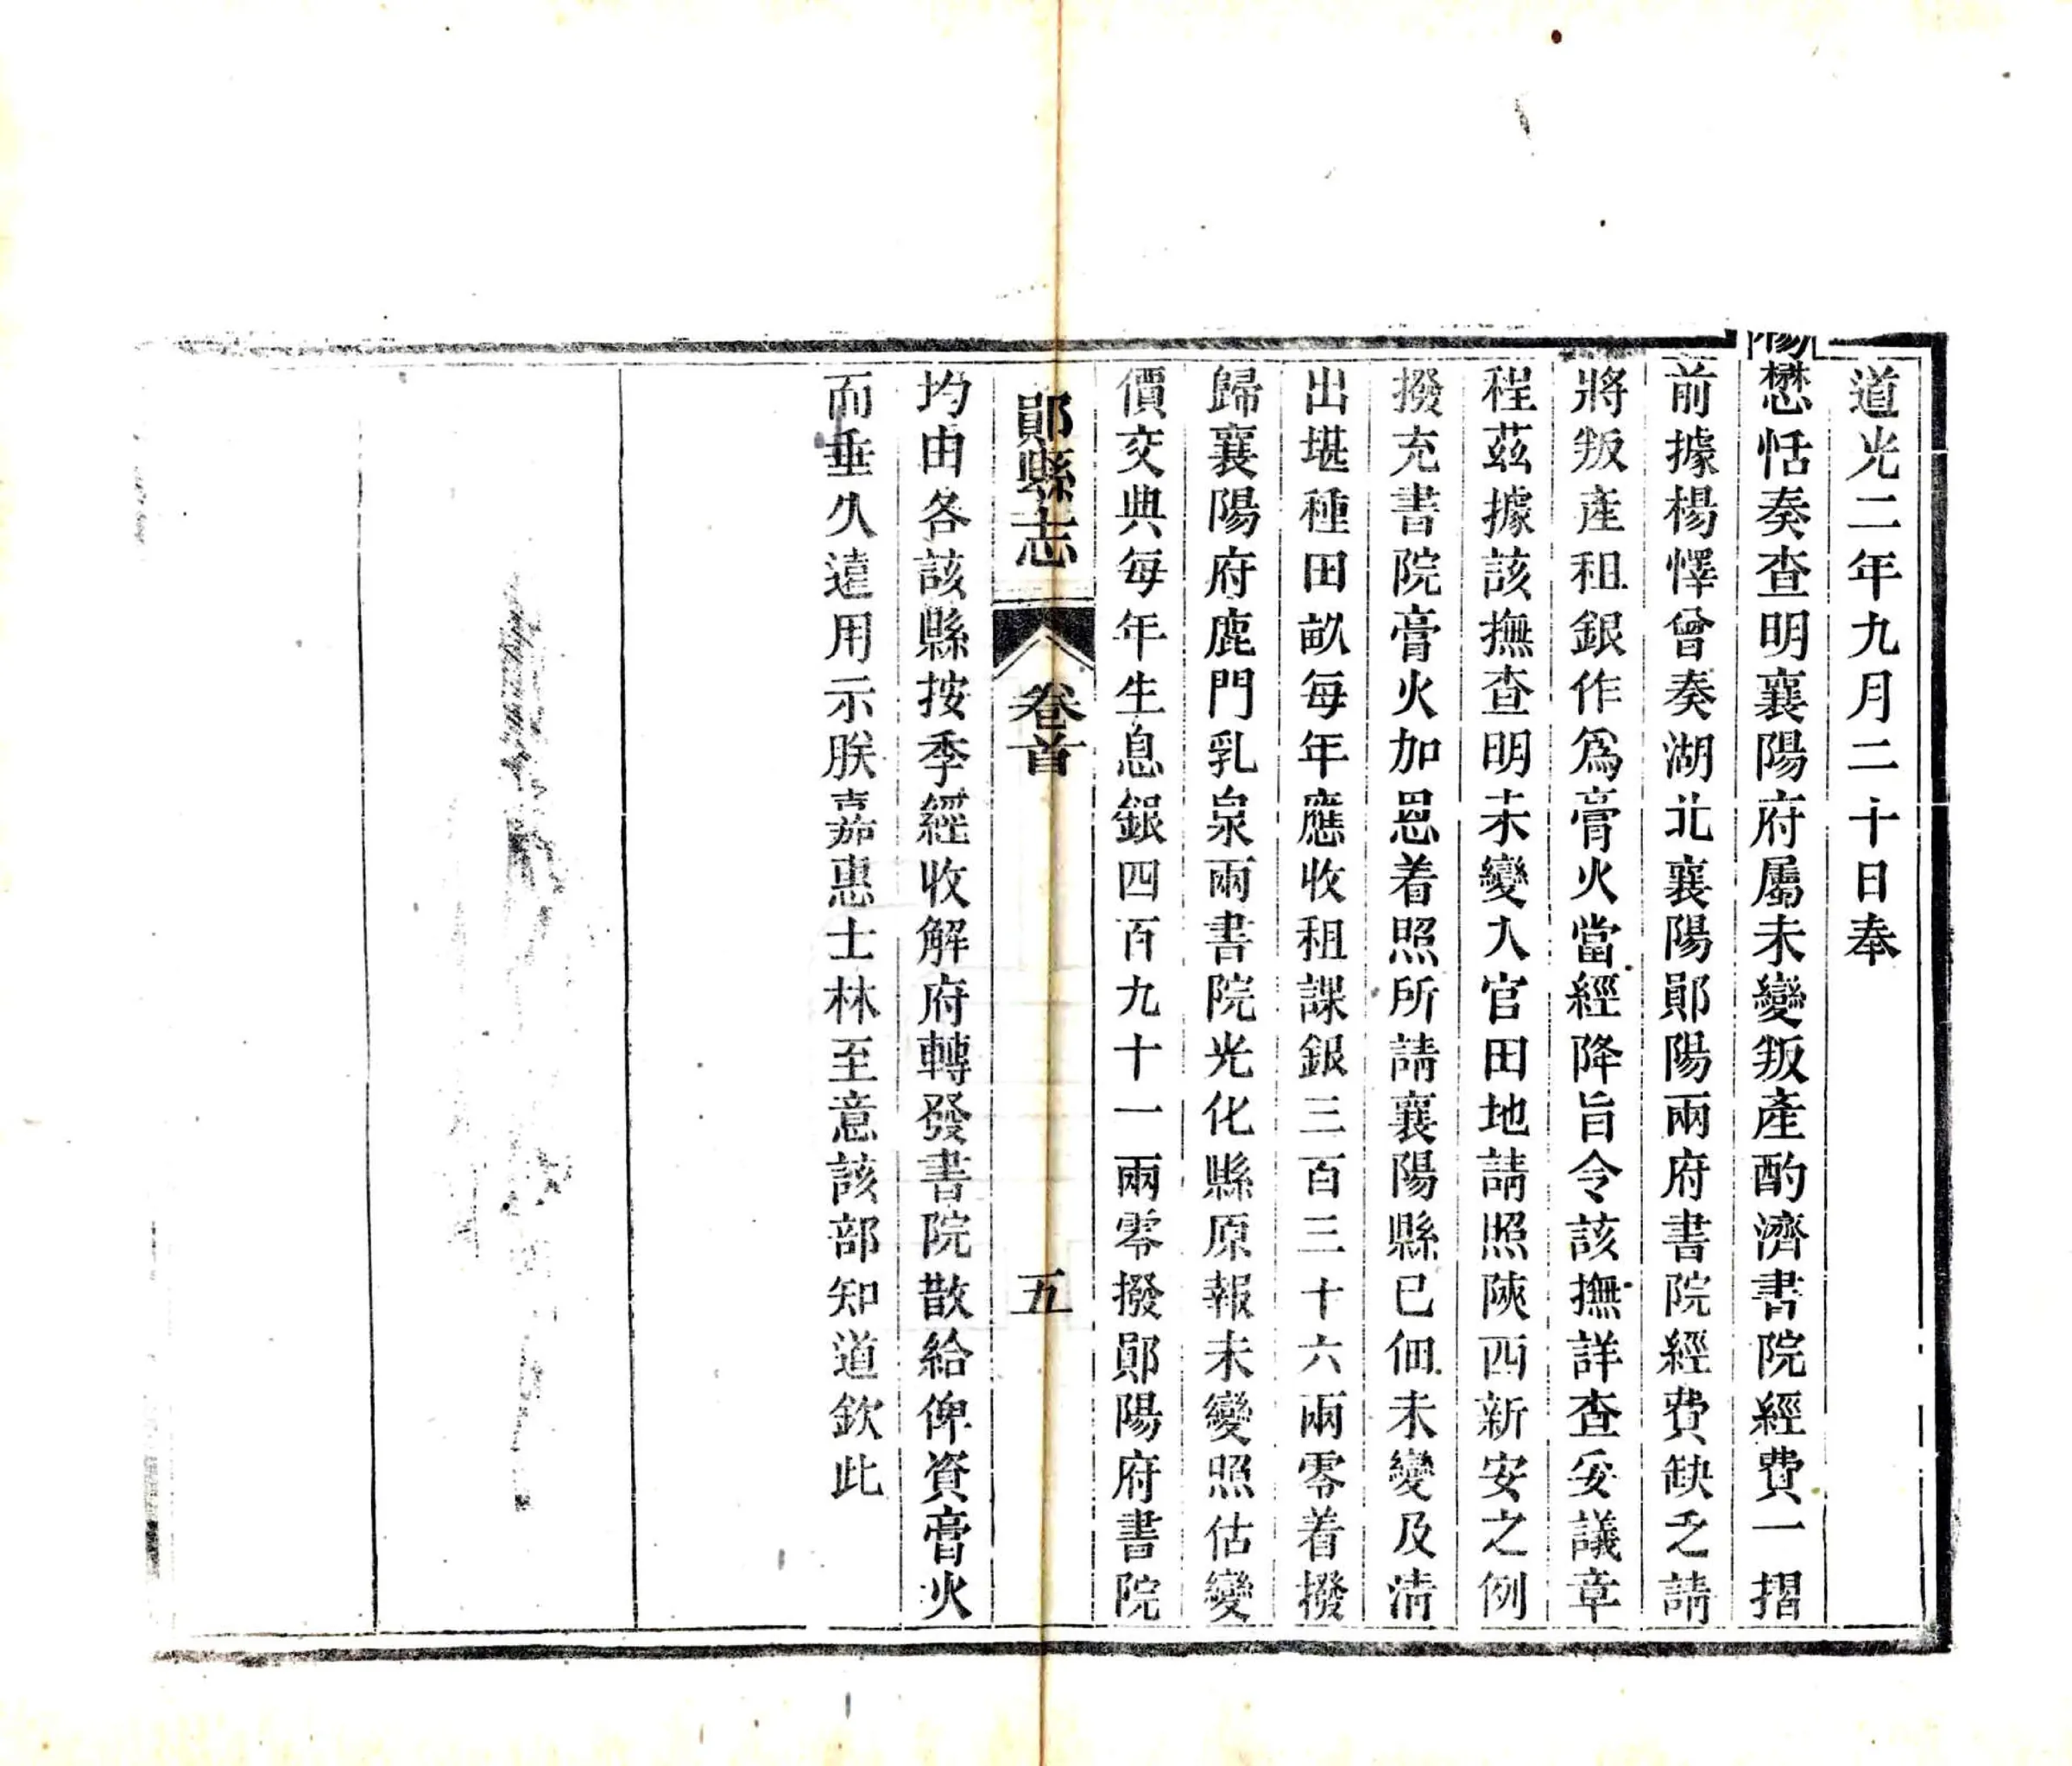 道光二年九月二十日奉
陽懋恬奏查明襄陽府屬未變叛產酌濟書院經費一摺
前據楊懌曾奏湖北襄陽鄖陽兩府書院經費缺乏請
將叛產租銀作爲膏火當經降旨令該撫詳查妥議章
程茲據該撫查明未變入官田地請照陝西新安之例
撥充書院膏火加恩着照所請襄陽縣已佃未變及清
出堪種田畝每年應收租課銀三百三十六兩零着撥
歸襄陽府鹿門乳泉兩書院光化縣原報未變照估變
價交典每年生息銀四百九十一兩零撥鄖陽府書院
鄖縣志
卷首
五
均由各該縣按季經收解府轉發書院散給俾資膏火
而垂久遠用示朕嘉惠士林至意該部知道欽此